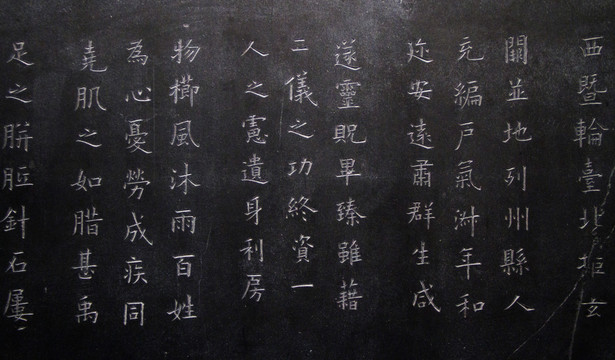 西暨輪臺北拒玄
闕並地列州縣人
充編戶氣淑年和
迩安遠肅群生咸
遂靈貺畢臻雖藉
二儀之功終資一
人之憲遺身利房
物櫛風沐雨百姓
為心憂勞成疾同
堯肌之如腊甚禹
足之胼胝針石屢